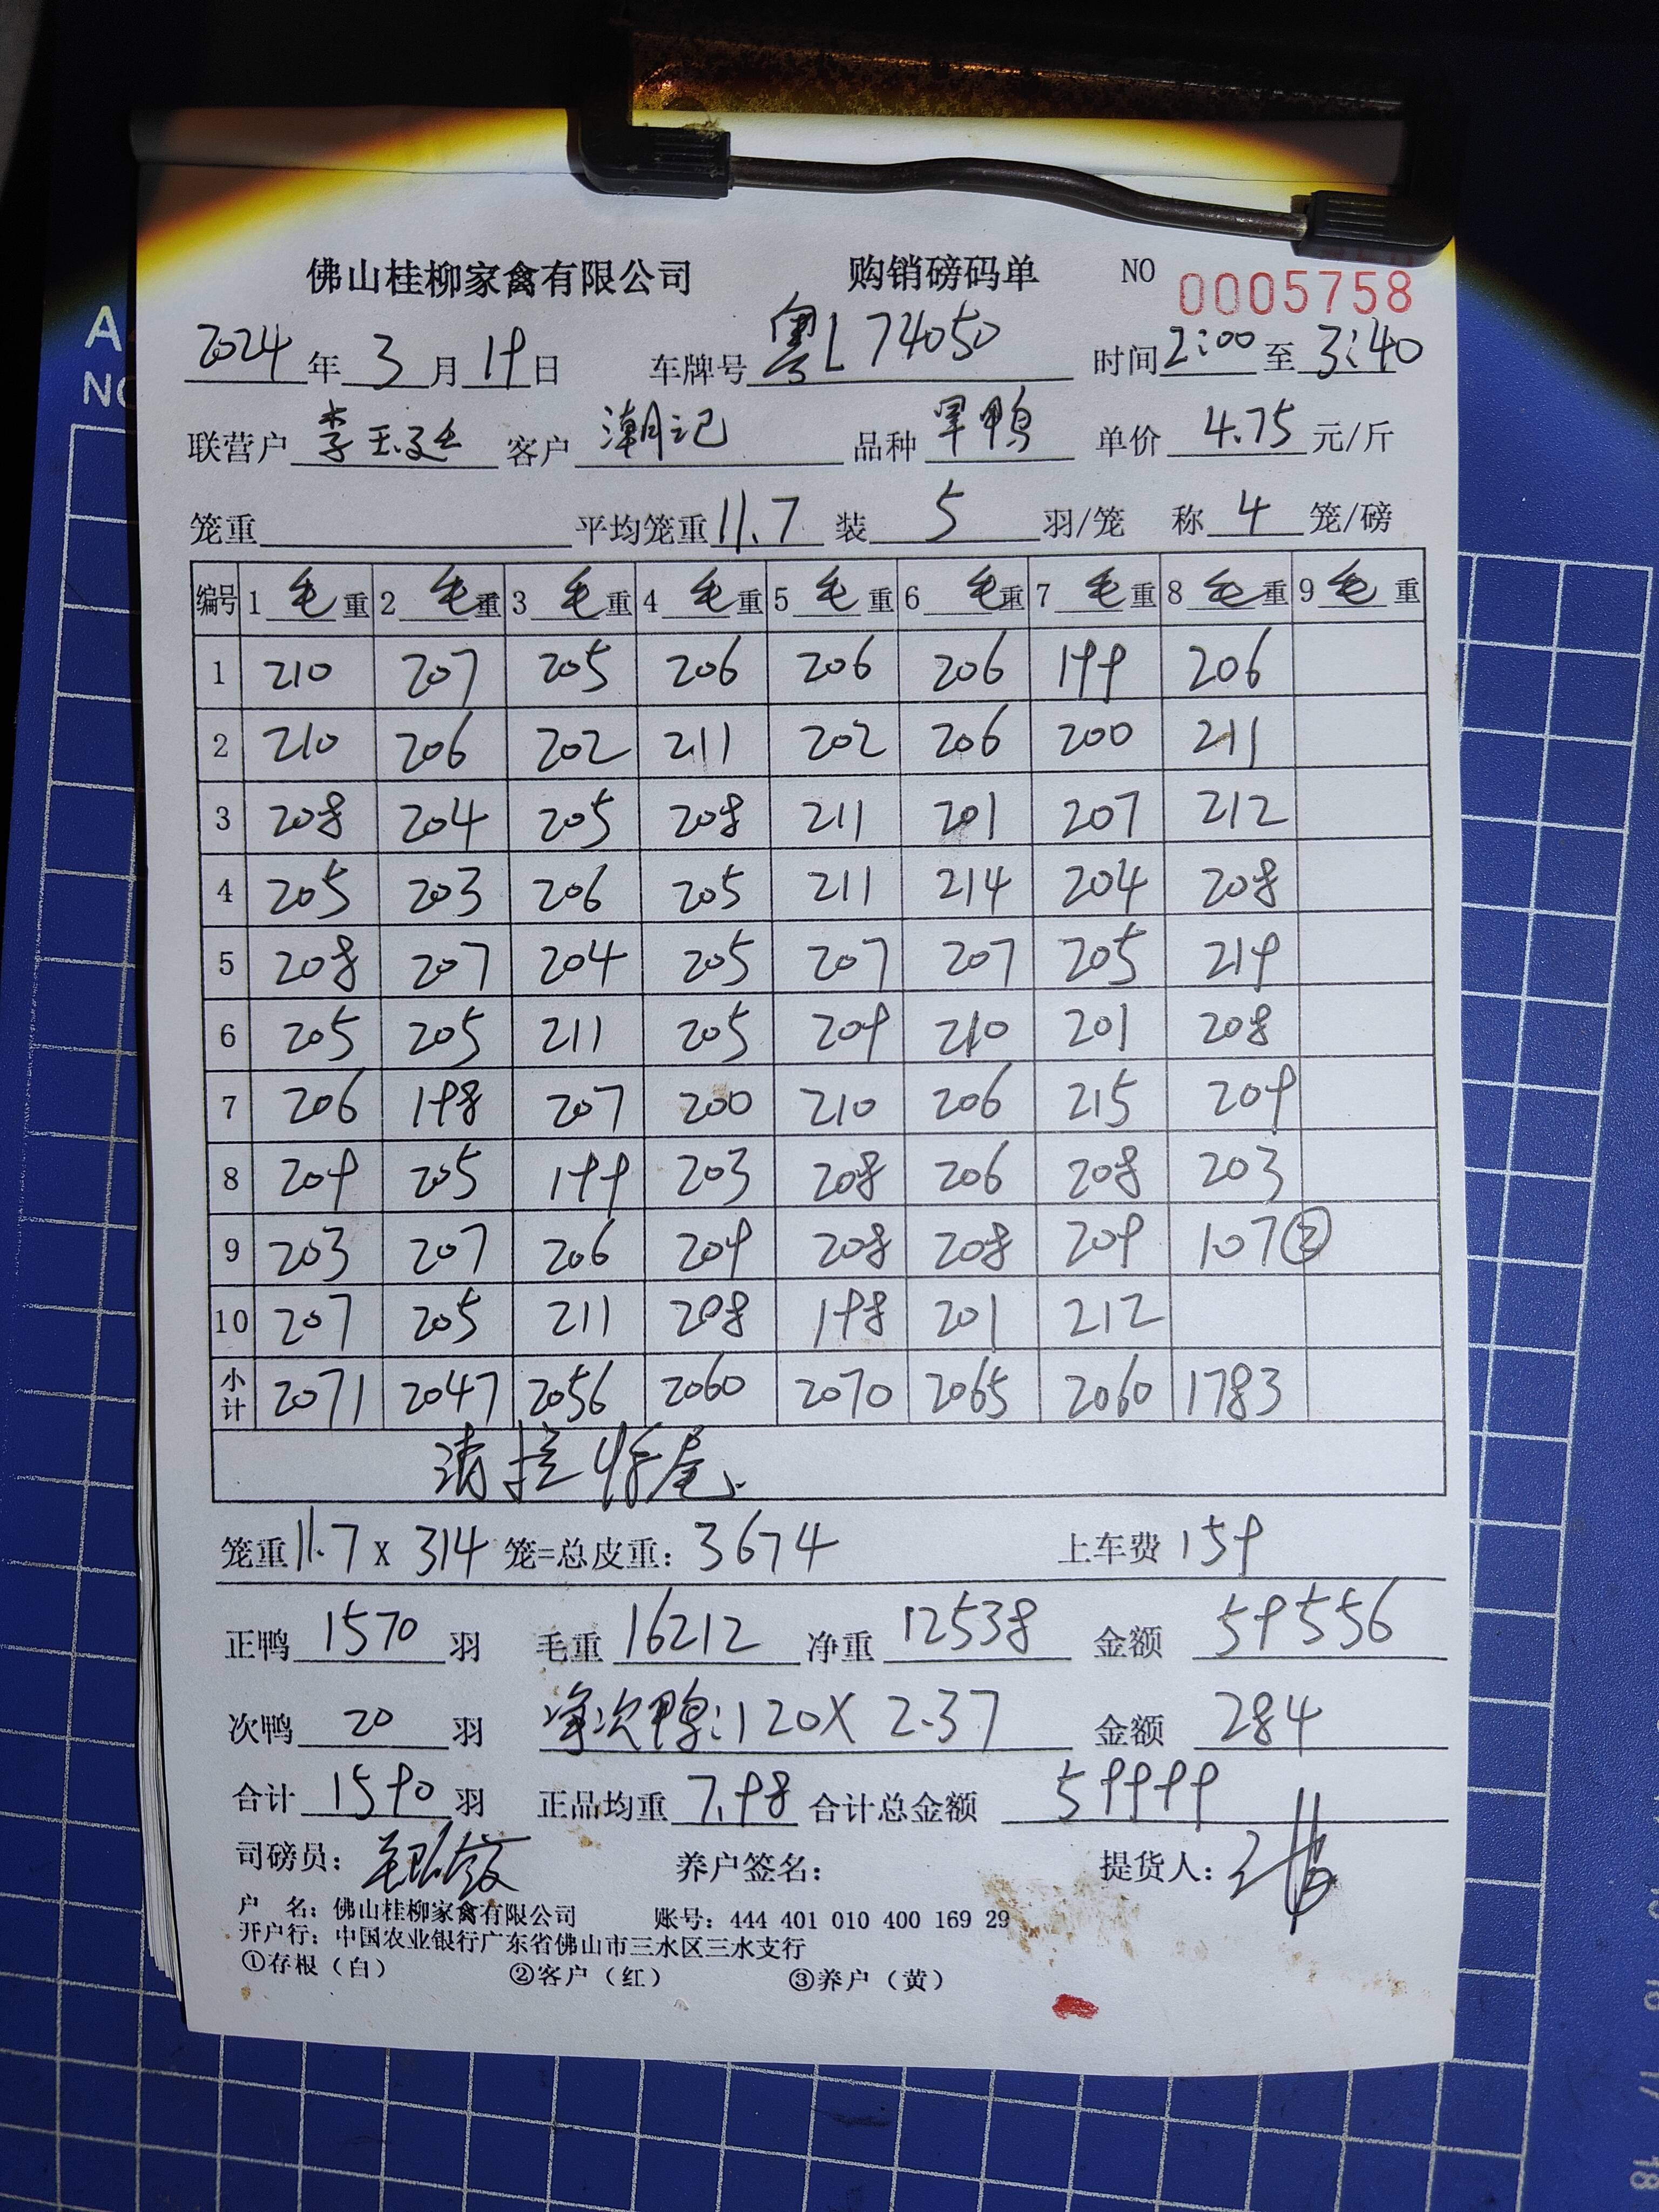 佛山桂柳家禽有限公司 购销磅码单 NO 0005758
2024年3月19日 车牌号粤L74050 时间2:00至3:40
联营户李玉廷 客户潮记 品种旱鸭 单价4.75元/斤
笼重 平均笼重11.7装5羽/笼 称4笼/磅
编号 1毛重 2毛重 3毛重 4毛重 5毛重 6毛重 7毛重 8毛重 9毛重
1 210 207 205 206 206 206 199 206
2 210 206 202 211 202 206 200 211
3 208 204 205 208 211 201 207 212
4 205 203 206 205 211 214 204 208
5 208 207 204 205 207 207 205 219
6 205 205 211 205 209 210 201 208
7 206 198 207 200 210 206 215 209
8 209 205 199 203 208 206 208 203
9 203 207 206 209 208 208 209 107②
10 207 205 211 208 198 201 212
小计 2071 2047 2056 2060 2070 2065 2060 1783
笼重11.7x314笼=总皮重:3674 上车费159
正鸭1570羽 毛重16212净重12538 金额59556
次鸭20羽 净次鸭:120X2.37 金额284
合计1590羽 正品均重7.98合计总金额59999
司磅员: 养户签名: 提货人:
户 名:佛山桂柳家禽有限公司 账号:444 401 010 400 169 29
开户行:中国农业银行广东省佛山市三水区三水支行
①存根(白) ②客户(红) ③养户(黄)